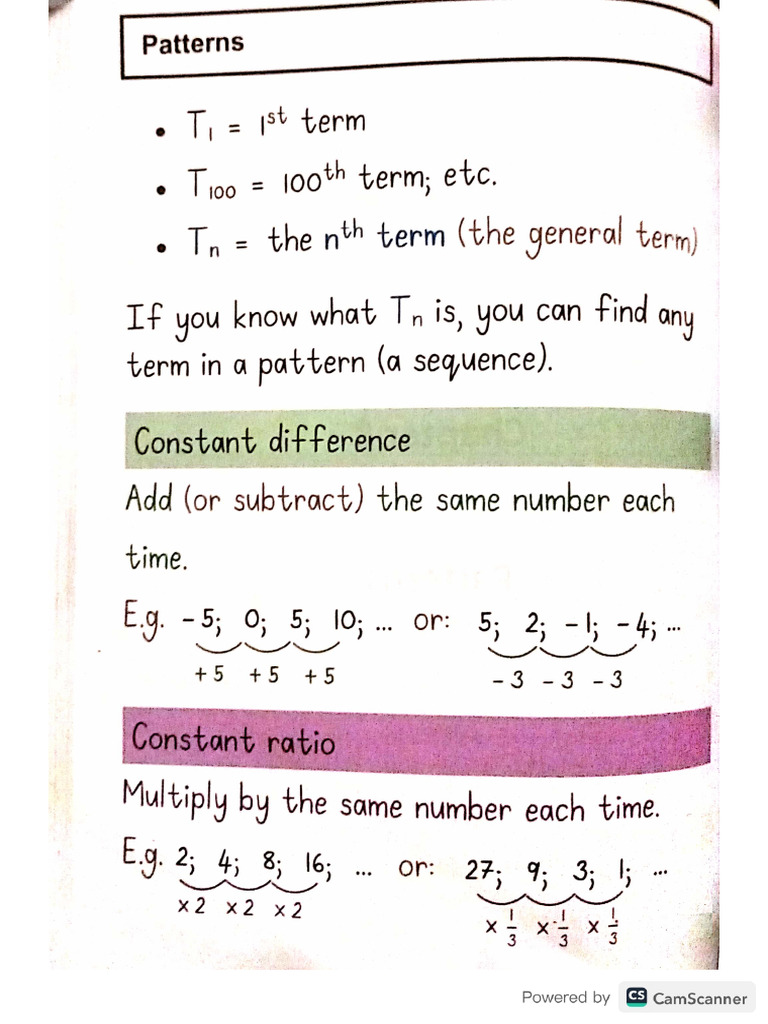 Patterns
• T₁ = 1ˢᵗ term
• T₁₀₀ = 100ᵗʰ term; etc.
• Tₙ = the nᵗʰ term (the general term)
If you know what Tₙ is, you can find any
term in a pattern (a sequence).
Constant difference
Add (or subtract) the same number each
time.
E.g. -5; 0; 5; 10; ... or: 5; 2; -1; -4; ...
+5 +5 +5 -3 -3 -3
Constant ratio
Multiply by the same number each time.
E.g. 2; 4; 8; 16; ... or: 27; 9; 3; 1; ...
×2 ×2 ×2 ×1/3 ×1/3 ×1/3
Powered by CS CamScanner